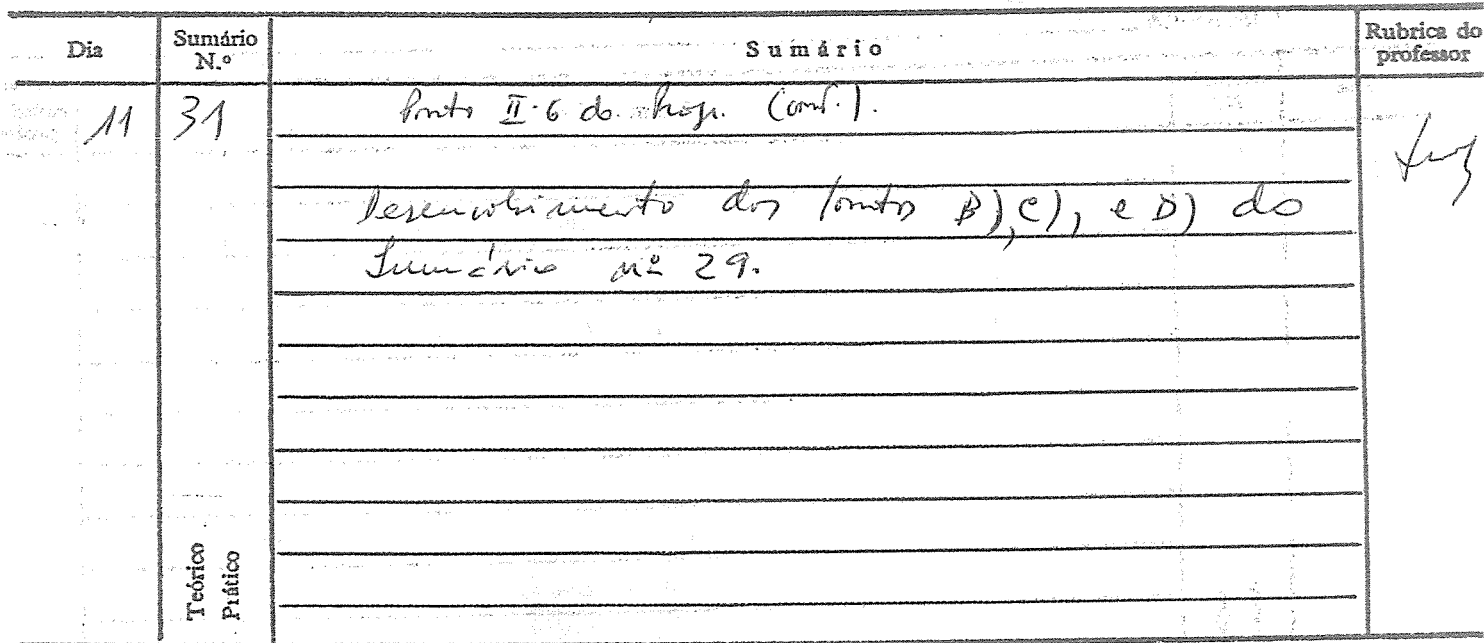 Dia Sumário N.º Sumário Rubrica do professor
11 31 Ponto II-6 do Progr. (Cont.).
Desenvolvimento dos Pontos B), C), e D) do
Sumário nº 29.
Teórico
Prático